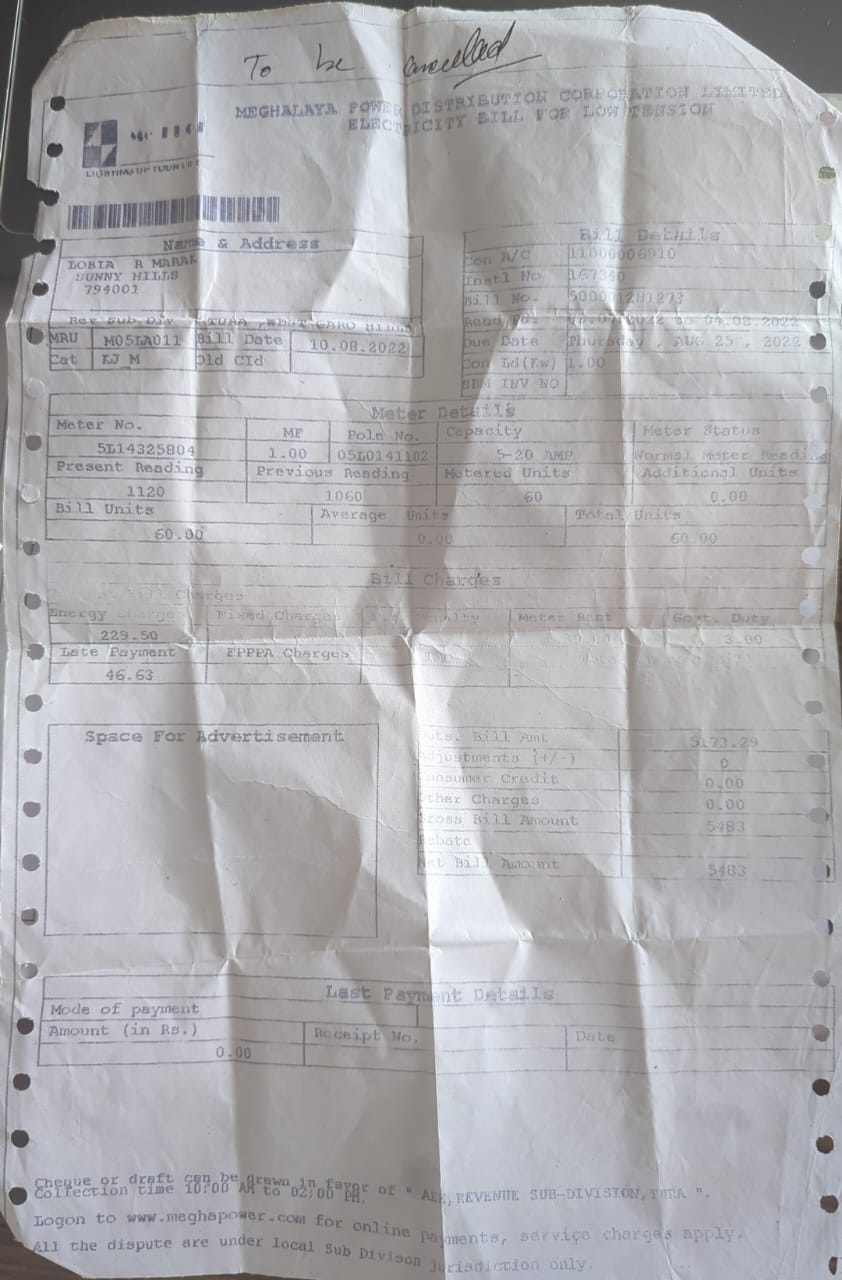 To be cancelled
MEGHALAYA POWER DISTRIBUTION CORPORATION LIMITED
ELECTRICITY BILL FOR LOW TENSION
LIGHTING UP YOUR LIFE
Name & Address
LOBIA R MARAK
SUNNY HILLS
794001
Rev Sub Div TURA ,WEST GARO HILLS
MRU M05LA011 Bill Date 10.08.2022
Cat KJ_M Old CId
Bill Details
Con A/C 11000006910
Instl No
Bill No. 500001281273
to 04.08.2022
Due Date Thursday , AUG 25 , 2022
Con Ld(Kw) 1.00
SBM INV NO
Meter Details
Meter No. MF Pole No. Capacity Meter Status
5L14325804 1.00 05L0141102 5-20 AMP Normal Meter Reading
Present Reading Previous Reading Metered Units Additional Units
1120 1060 60 0.00
Bill Units Average Units Total Units
60.00 0.00 60.00
Bill Charges
Bill Charges
Energy Charge Fixed Charges Penalty Meter Rent Govt. Duty
229.50 3.00
Late Payment FPPPA Charges
46.63
Space For Advertisement
Bill Amt 5173.29
Adjustments (+/-) 0
Consumer Credit 0.00
Other Charges 0.00
Gross Bill Amount 5483
Rebate
Net Bill Amount 5483
Last Payment Details
Mode of payment
Amount (in Rs.) Receipt No. Date
0.00
Cheque or draft can be drawn in favor of " AEE, REVENUE SUB-DIVISION, TURA ".
Collection time 10:00 AM to 02:00 PM.
Logon to www.meghapower.com for online payments, service charges apply.
All the dispute are under local Sub Divison jurisdiction only.